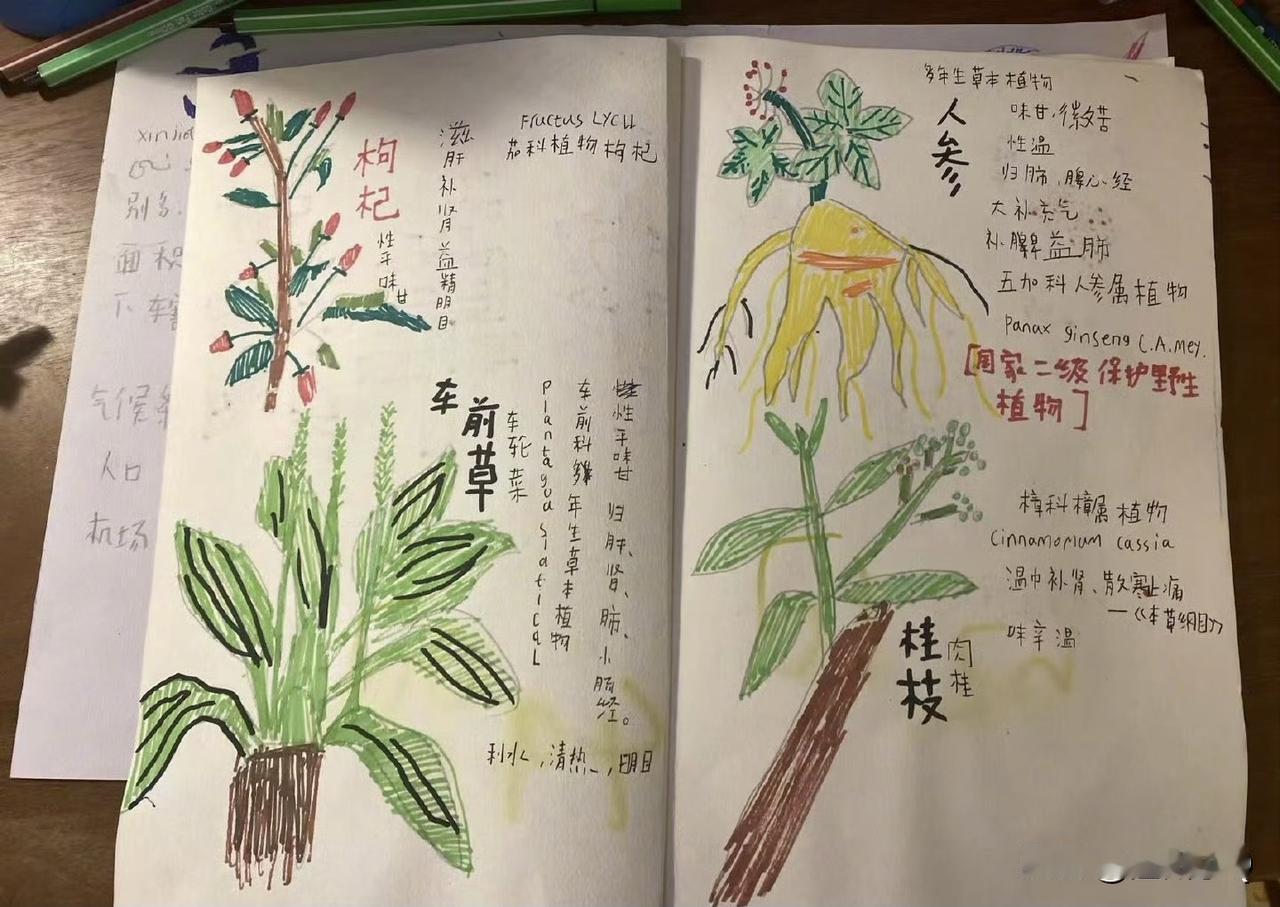 枸杞
性平味甘
滋肝补肾益精明目
Fructus LYCII
茄科植物枸杞
车前草
车轮菜
Plantagoa siaticaL
车前科多年生草本植物
性平味甘 归肝、肾、肺、小肠经。
利水,清热,明目
多年生草本植物
人参
味甘,微苦
性温
归肺、脾心经
大补元气
补脾益肺
五加科人参属植物
Panax ginseng C.A.Mey.
[国家二级保护野生
植物]
樟科樟属植物
Cinnamomum cassia
温中补肾、散寒止痛
—《本草纲目》
味辛温
桂枝
肉桂
xinji
别名
面积
下辖
气候条
人口
机场